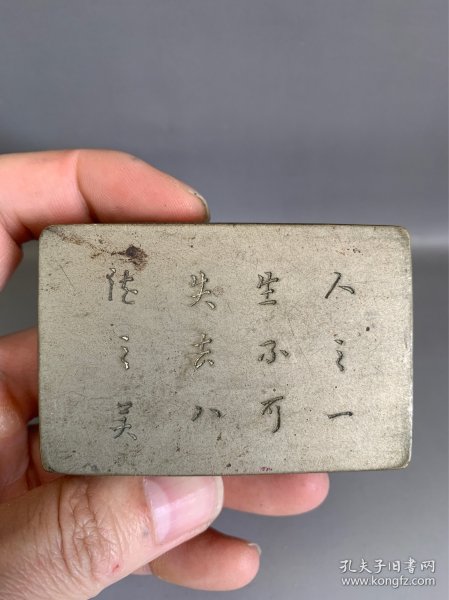 人之一
生不可
失去八
德之美
孔夫子旧书网
www.kongfz.com